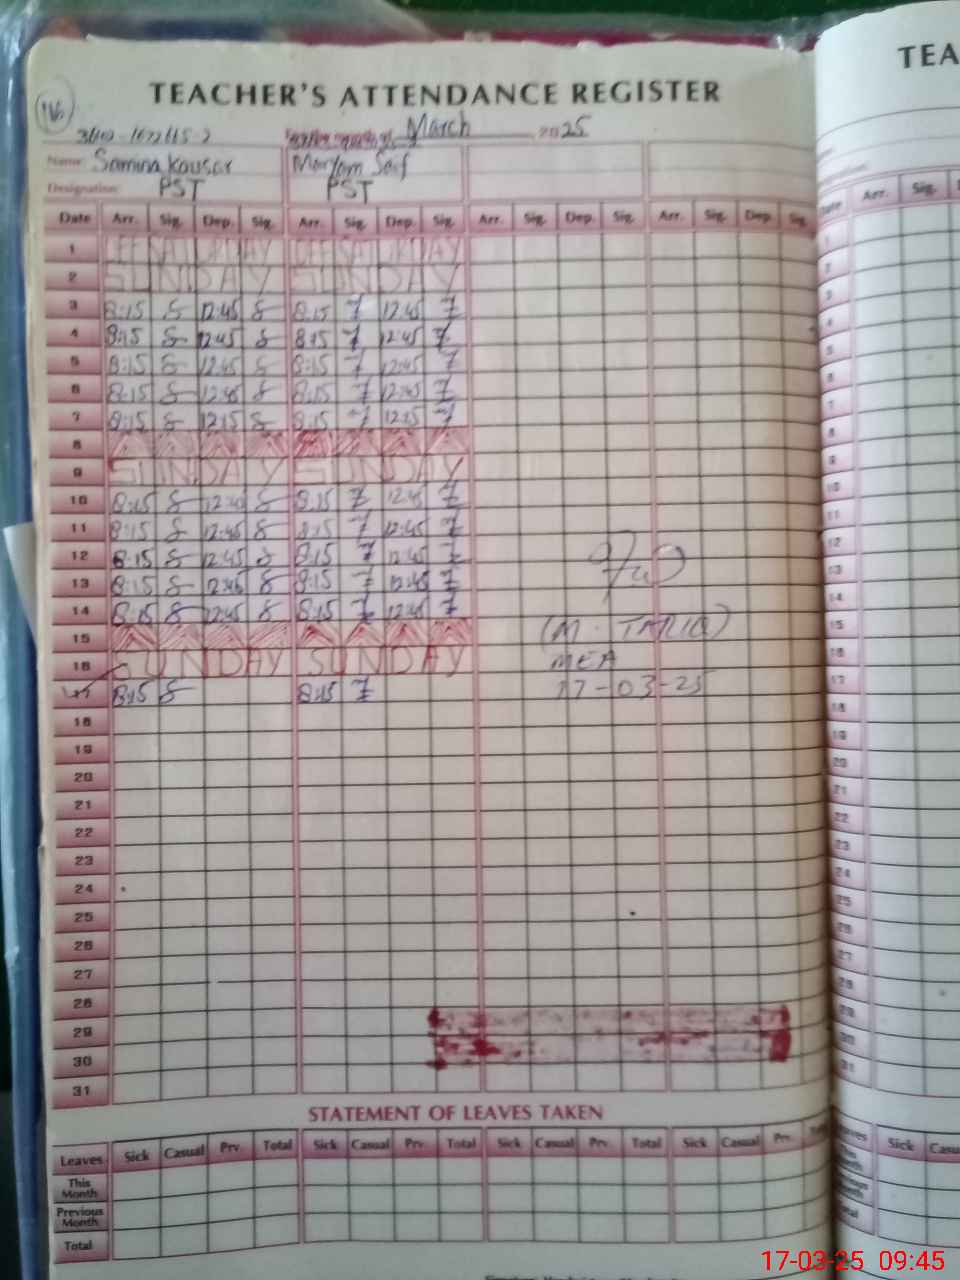 TEACHER'S ATTENDANCE REGISTER
TEA
March 2025
Name: Samina Kousar Maryam Saif
Designation: PST PST
Date Arr. Sig. Dep. Sig. Arr. Sig. Dep. Sig. Arr. Sig. Dep. Sig. Arr. Sig. Dep. Sig.
Date Arr. Sig.
1 SATURDAY SATURDAY
2 SUNDAY SUNDAY
3 8:15 12:45 8:15 12:45
4 8:15 12:45 8:15 12:45
5 8:15 12:45 8:15 12:45
6 8:15 12:45 8:15 12:45
7 8:15 12:15 8:15 12:15
8
9 SUNDAY SUNDAY
10 8:15 8:15 12:45
11 8:15 12:45 8:15 12:45
12 8:15 12:45 8:15 12:45
13 8:15 12:45 8:15 12:45
14 8:15 12:45 8:15 12:45
15 (M. TARIQ)
16 SUNDAY SUNDAY MEA
17 8:15 8:15 17-03-25
18
19
20
21
22
23
24
25
26
27
28
29
30
31
STATEMENT OF LEAVES TAKEN
Leaves Sick Casual Prv. Total Sick Casual Prv. Total Sick Casual Prv. Total Sick Casual Prv. Total
This Month
Previous Month
Total
17-03-25 09:45